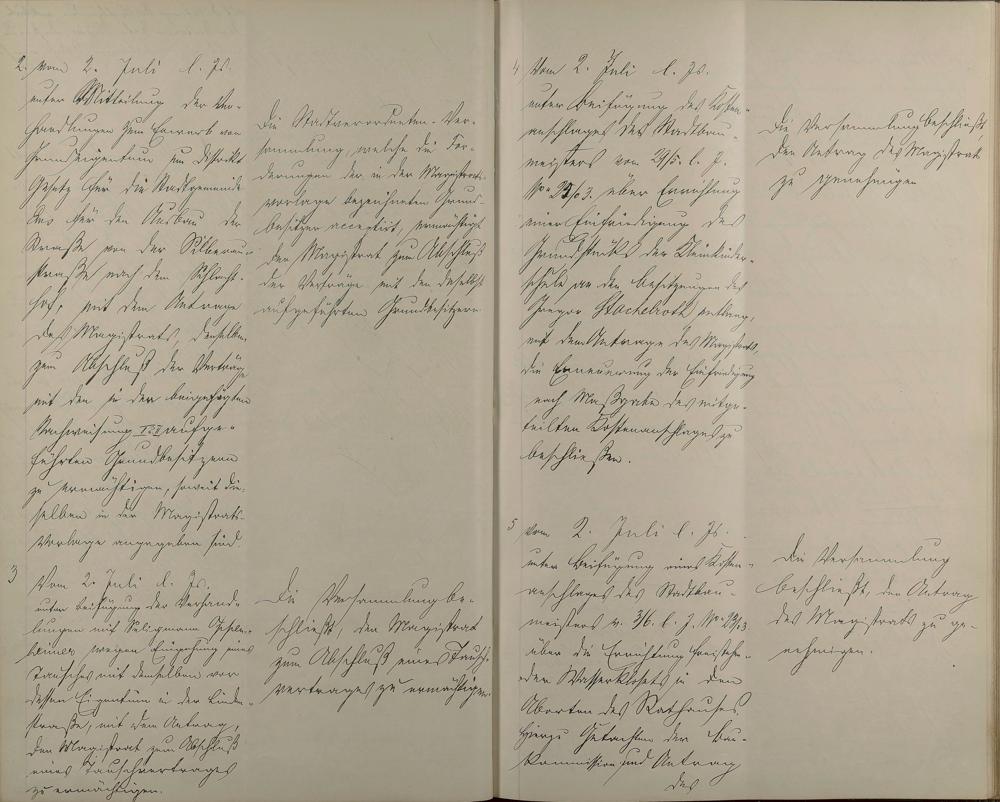 2. vom 2. Juli l. Js.
unter Mitteilung der Ver-
handlungen zum Erwerb von
Grundeigentum im Distrikt
für die Stadtgemeinde
für den Ausbau der
Straße von der Silberau-
straße nach dem Schlacht-
hof, mit dem Antrage
des Magistrats, denselben
zum Abschluß der Verträge
mit den in der beigefügten
Nachweisung I & II aufge-
führten Grundbesitzern
zu ermächtigen, soweit die-
selben in der Magistrats-
vorlage angegeben sind.
Die Stadtverordneten-Ver-
sammlung, welche die For-
derungen der in der Magistrats-
vorlage bezeichneten Grund-
besitzer acceptirt, ermächtigt
den Magistrat zum Abschluß
der Verträge mit den daselbst
aufgeführten Grundbesitzern
3 Vom 2. Juli l. Js.
unter Beifügung der Verhand-
lungen mit Seligmann
wegen Eingehung eines
Tausches mit demselben vor
dessen Eigentum in der Linden-
straße, mit dem Antrag,
den Magistrat zum Abschluß
eines Tauschvertrages
zu ermächtigen.
Die Versammlung be-
schließt, den Magistrat
zum Abschluß eines Tausch-
vertrages zu ermächtigen.
4 Vom 2. Juli l. Js.
unter Beifügung des Kosten-
anschlages des Stadtbau-
meisters vom 29/5. l. J.
über Errichtung
einer Einfriedigung des
Grundstücks der Kleinkinder-
schule an den Besitzungen des
Gregor Stachelroth entlang,
mit dem Antrage des Magistrats,
die Erneuerung der Einfriedigung
nach Maßgabe des mitge-
teilten Kostenanschlages zu
beschließen.
Die Versammlung beschließt
den Antrag des Magistrats
zu genehmigen
5 vom 2. Juli l. Js.
unter Beifügung eines Kosten-
anschlages des Stadtbau-
meisters v. 3/6. l. J.
über die Errichtung freistehen-
der Wasserklosets in den
Aborten des Rathauses,
hierzu Gutachten der Bau-
kommission und Antrag
des
Die Versammlung
beschließt, den Antrag
des Magistrats zu ge-
nehmigen.